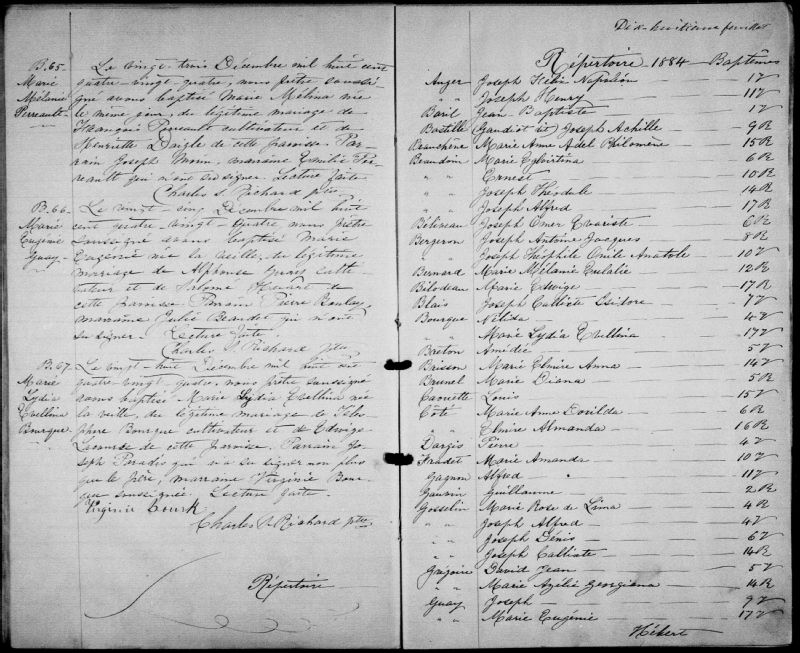 B. 65
Marie
Mélanie
Perreault
Le vingt-trois Décembre mil huit cent
quatre-vingt-quatre, nous prêtre soussi-
gné avons baptisé Marie Mélina née
le même jour, du légitime mariage de
François Perreault cultivateur et de
Henriette Daigle de cette paroisse. Par-
rain Joseph Morin, marraine Emilie Per-
reault qui n'ont su signer. Lecture faite
Charles S. Richard ptre
B. 66
Marie
Eugénie
Guay
Le vingt-cinq Décembre mil huit
cent quatre-vingt-quatre nous prêtre
soussigné avons baptisé Marie
Eugénie née la veille, du légitime
mariage de Alphonse Guay culti-
vateur et de Salomé
cette paroisse. Parrain Pierre Boulay,
marraine Julie Beaudet qui n'ont
su signer. Lecture faite.
Charles S. Richard ptre
B. 67
Marie
Lydia
Evellina
Bourque
Le vingt-huit Décembre mil huit cent
quatre-vingt-quatre, nous prêtre soussigné
avons baptisé Marie Lydia Evellina née
la veille, du légitime mariage de Téles-
phore Bourque cultivateur et de Edwige
Lacourse de cette paroisse. Parrain Jo-
seph Paradis qui n'a su signer non plus
que le père, marraine Virginie Bour-
que soussignée. Lecture faite.
Virginie Bourk
Charles S. Richard ptre
Répertoire
Dix-huitième feuillet
Répertoire 1884 Baptêmes
Auger Joseph Félix Napoléon — 1V
" " Joseph Henry — 11V
Baril Jean Baptiste — 1V
Bastille (Gaudiot dit) Joseph Achille — 9R
Beauchêne Marie Anne Adel Philomène — 15R
Beaudoin Marie Egloitina — 6R
" " Ernest — 10R
" " Joseph Théodule — 14R
" " Joseph Alfred — 17R
Béliveau Joseph Omer Evariste — 6R
Bergeron Joseph Antoine Jacques — 8R
" " Joseph Théophile Onile Anatole — 10V
Bernard Marie Mélanie Eulalie — 12R
Bilodeau Marie Edwige — 17R
Blais Joseph Calliste Isidore — 7V
Bourque Nélida — 4V
" " Marie Lydia Evellina — 17V
Breton Amédée — 5V
Brisson Marie Elmire Anna — 14V
Brunel Marie Diana — 5R
Caouette Louis — 15V
Côté Marie Anne Dorilda — 6R
" " Elmire Almanda — 16R
Dargis Pierre — 4V
Fradet Marie Amanda — 10V
Gagnon Alfred — 11V
Gauvin Guillaume — 2R
Gosselin Marie Rose de Lima — 4R
" " Joseph Alfred — 4V
" " Joseph Dénis — 6V
" " Joseph Calliste — 14R
Grégoire David Jean — 5V
" " Marie Azélie Georgiana — 14R
Guay Joseph — 9V
" " Marie Eugénie — 17V
Hébert